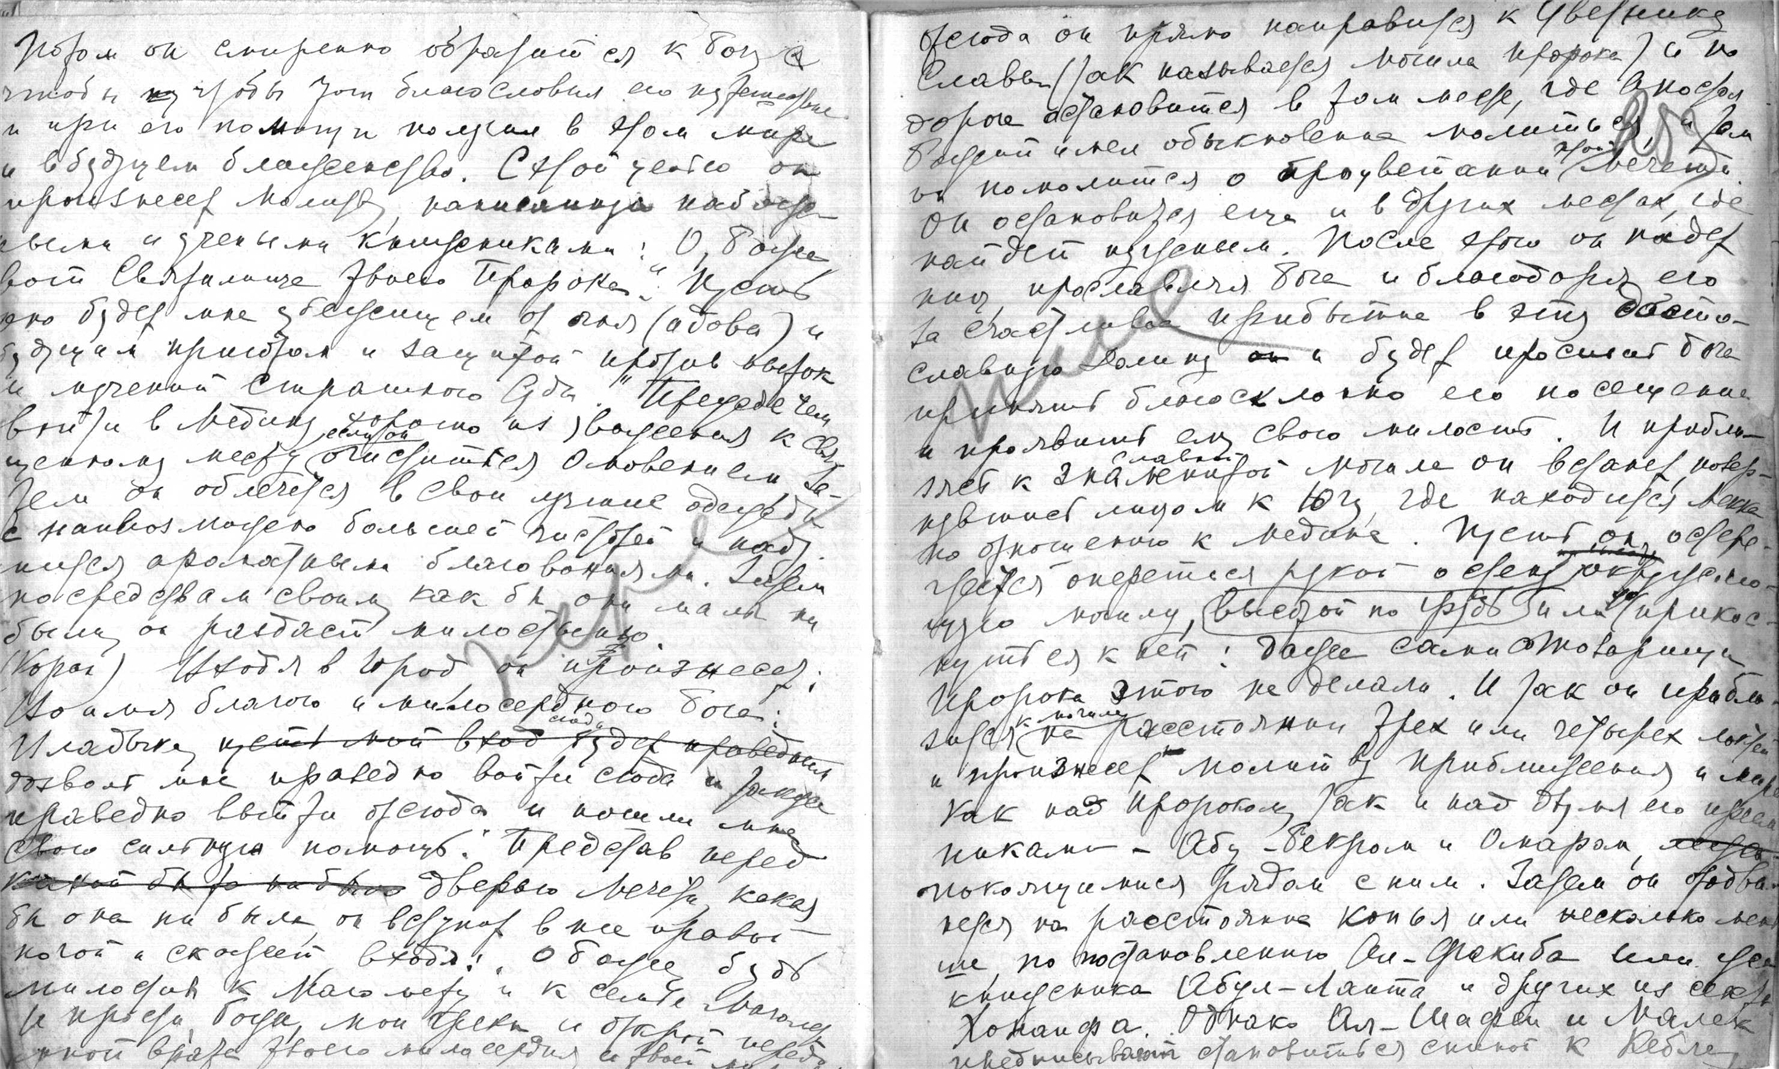 Потом он смиренно обратится к богу с
чтобы чтобы тот благословил его путешествие
и при его помощи получил в этом мире
и в будущем блаженство. С этой целью он
произнесет молитву, написанную набожн
ными и учеными книжниками: О, Боже
вот Святилище твоего Пророка. "Пусть
оно будет мне убежищем от огня (адова) и
будущим приютом и защитой против пыток
и мучений Страшного Суда." Прежде чем
войти в Медину хорошо из уважения к свя
щенному месту если он очистится омовением. За-
тем он облечется в свои лучшие одежды
с наивозможно большей чистотой и над
шится ароматными благовониями. Затем
посредствам своим, как бы они малы ни
были, он раздаст милостыню.
(Коран) Входя в город он произнесет:
Во имя благого и милосердного бога:
Владыка, пусть мой вход сюда будет праведным
дозволь мне праведно войти сюда и также
праведно выйти отсюда и пошли мне
свою сильную помощь." Представ перед
какой бы то ни было дверью мечети, какая
бы она ни была, он вступит в нее правой
ногой и скажет входя: "О боже, будь
милостив к Магомету и к семье Магомета
И прости, боже, мои грехи и открой передо
мной врата твоего милосердия и твоей
отсюда он прямо направится к Цветнику
Славы (так называется могила пророка) и по
дороге остановится в том месте, где Апостол
Божий имел обыкновение молиться, и там
он помолится о процветании этой мечети.
Он остановится еще и в других местах, где
найдет нужным. После этого он падет
ниц, прославляя бога и благодаря его
за счастливое прибытие в эту досто-
славную долину он и будет просить бога
принять благосклонно его посещение
и проявить ему свою милость. И прибли-
зясь к знаменитой славной могиле он встанет, повер-
нувшись лицом к югу, где находится Мекка
по отношению к Медине. Пусть он остере-
жется опереться рукой о стену, окружаю-
щую могилу, (высотой по грудь) или прикос-
нуться к ней: даже сами товарищи
Пророка этого не делали. И так он прибли-
зится к могиле на расстоянии трех или четырех локтей
и произнесет молитву приближения и мира
как над пророком, так и над двумя его преем
никами - Абу-Бекром и Омаром,
покоящимися рядом с ним. Затем он отодви-
нется на расстояние копья или несколько мень
ше, по постановлению Ал-Факиба или
книжника Абул-Лаита и других из секты
Ханифа. Однако Ал-Шафеи и Малек
предписывают становиться спиной к Кебле,